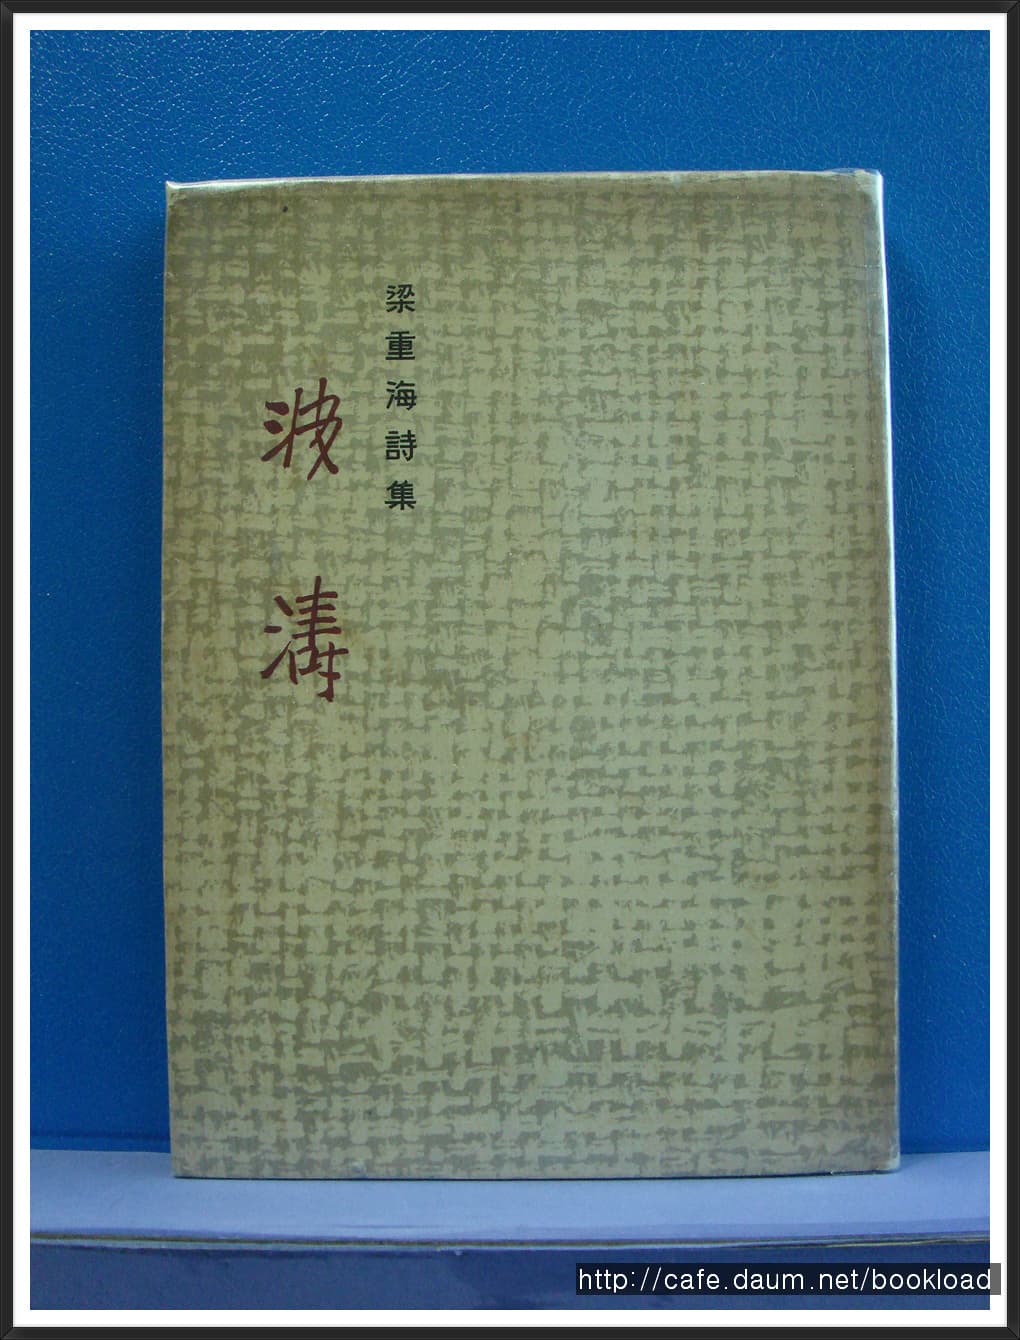 梁重海詩集
波濤
http://cafe.daum.net/bookload